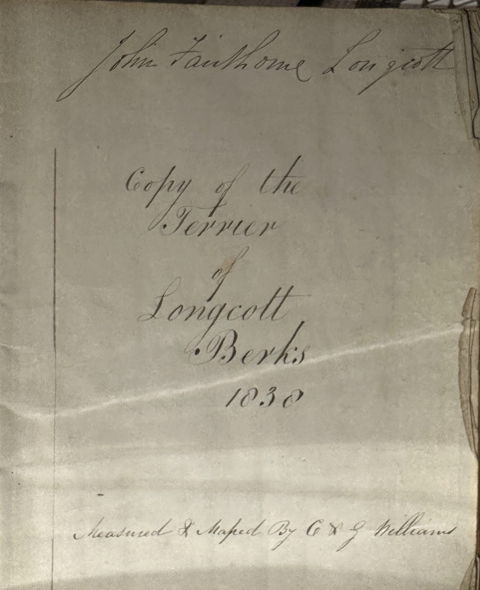 John Fairthorne Longcott
Copy of the
Terrier
of
Longcott
Berks
1838
Measured & Maped By C & G Williams